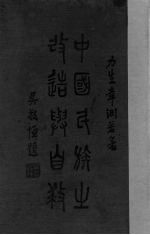 力生章淵若著
中國民族之
改造與自救
吳敬恆題